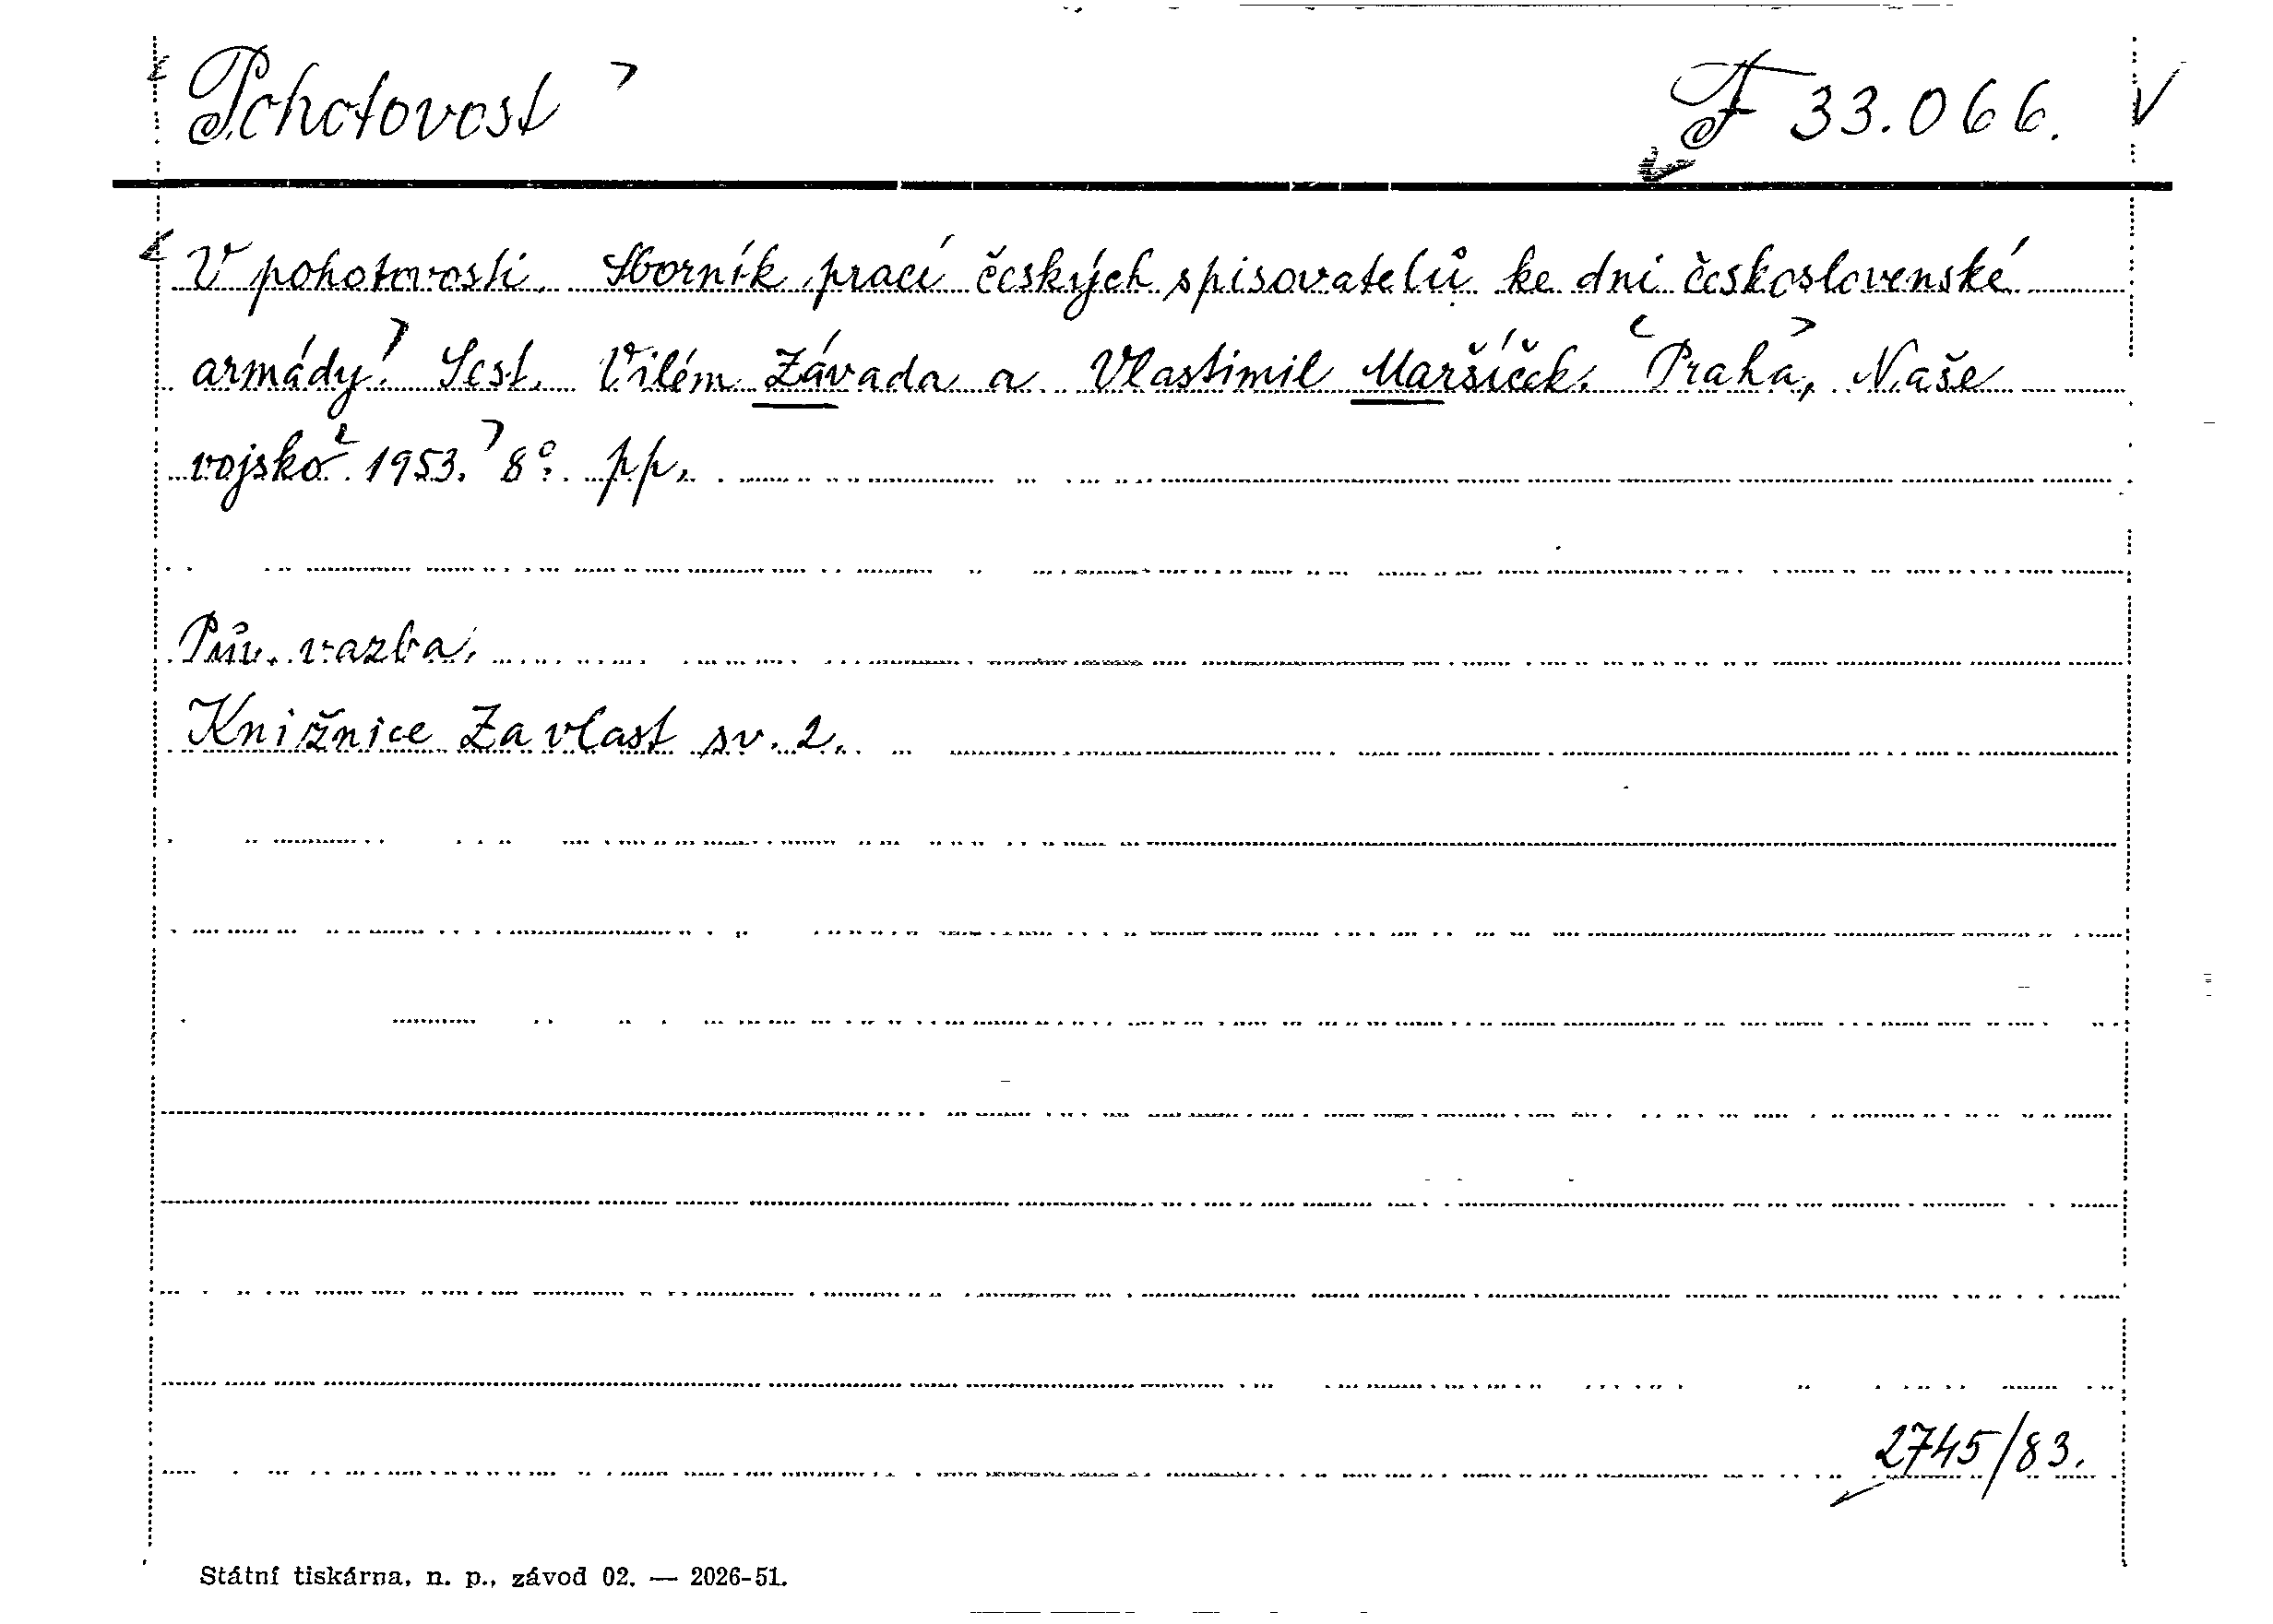 Pohotovost F 33.066. V
V pohotovosti. Sborník prací českých spisovatelů ke dni československé
armády. Sest. Vilém Závada a Vlastimil Maršíček. Praha, Naše
vojsko 1953. 8°. pp.
Pův. vazba.
Knižnice Za vlast sv. 2.
2745/83.
Státní tiskárna, n. p., závod 02. — 2026-51.